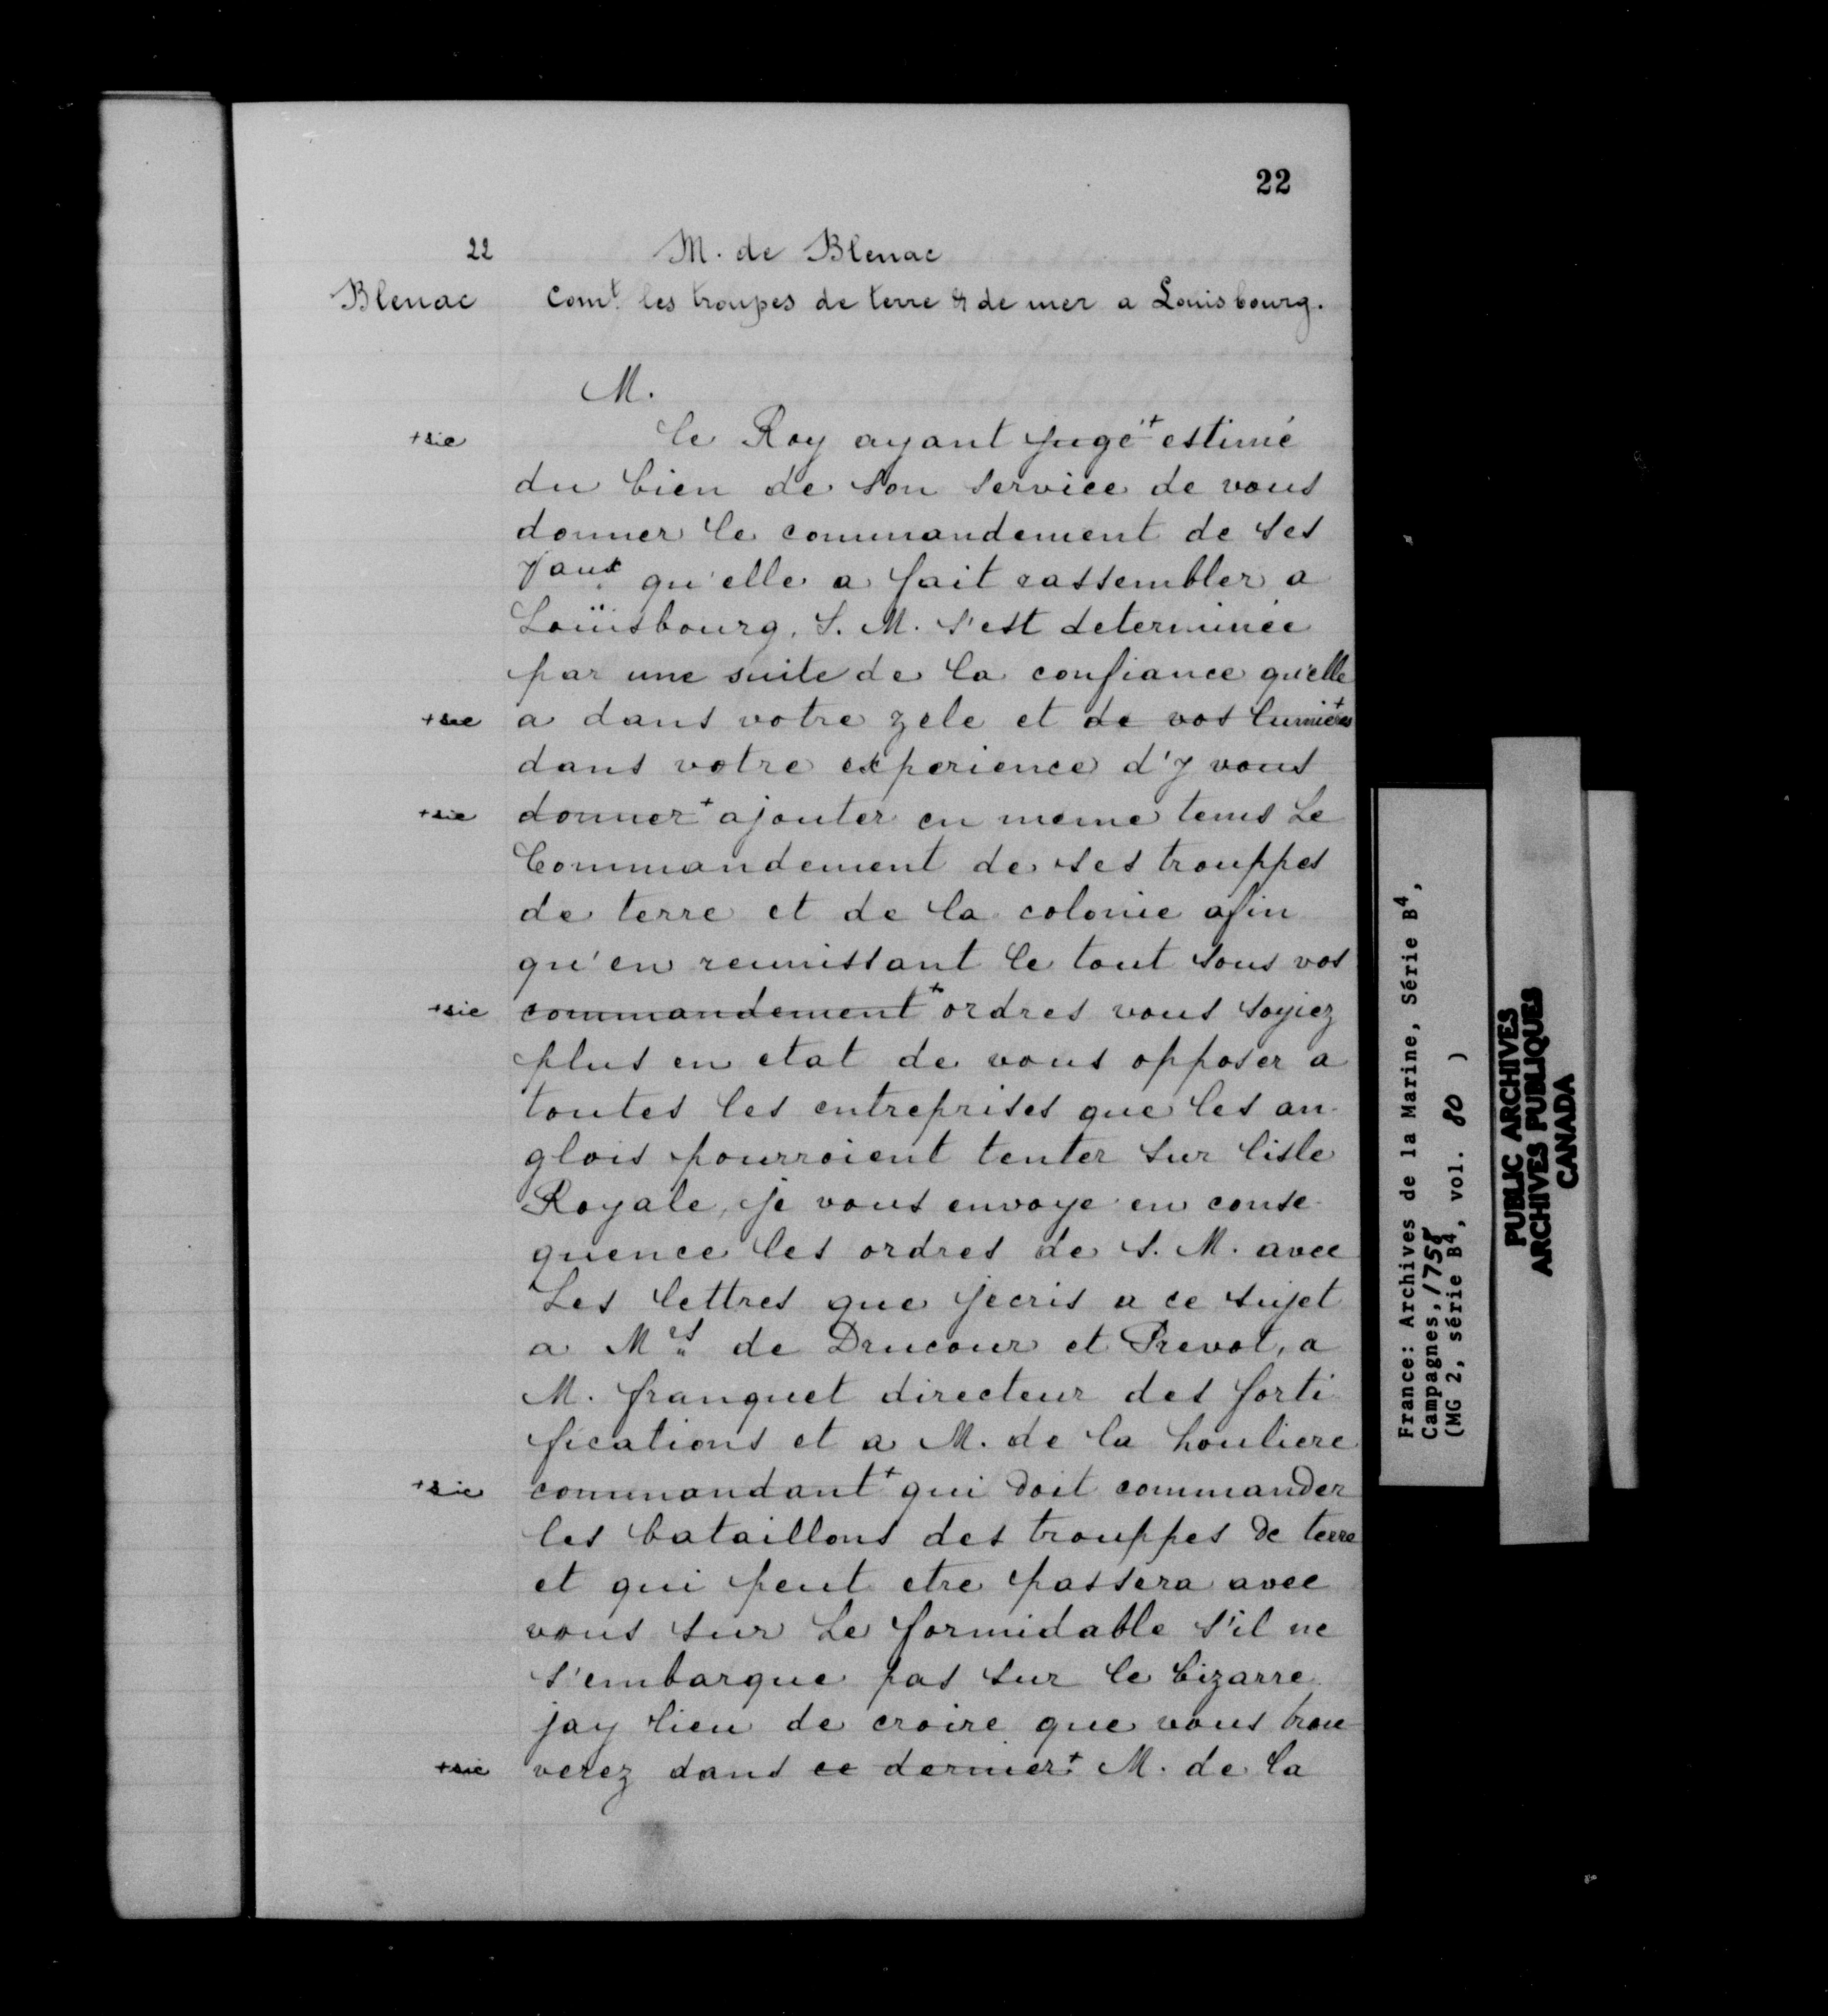 22
22 M. de Blenac
Blenac Comt. les troupes de terre & de mer a Louisbourg.
M.
+sic le Roy ayant jugé+ estimé
du bien de son service de vous
donner le commandement de ses
Vaux qu'elle a fait rassembler a
Loüisbourg, S. M. s'est determinée
par une suite de la confiance qu'elle
+sic a dans votre zele et de vos lumieres+
dans votre experience d'y vous
+sic donner+ ajouter en meme tems Le
Commandement de ses trouppes
de terre et de la colonie afin
qu'en reunissant le tout sous vos
+sic commandement+ ordres vous soyiez
plus en etat de vous opposer a
toutes les entreprises que les an-
glois pourroient tenter sur lisle
Royale, je vous envoye en conse-
quence les ordres de S. M. avec
Les lettres que jecris a ce sujet
a Mrs de Drucour et Prevot, a
M. franquet directeur des forti
fications et a M. de la houliere
+sic commandant+ qui doit commander
les bataillons des trouppes de terre
et qui peut etre passera avec
vous sur Le formidable s'il ne
s'embarque pas sur le bizarre
jay lieu de croire que vous trou
+sic verez dans ce dernier+ M. de la
France: Archives de la Marine, Série B4,
Campagnes, 1758
(MG 2, série B4, vol. 80 )
PUBLIC ARCHIVES
ARCHIVES PUBLIQUES
CANADA